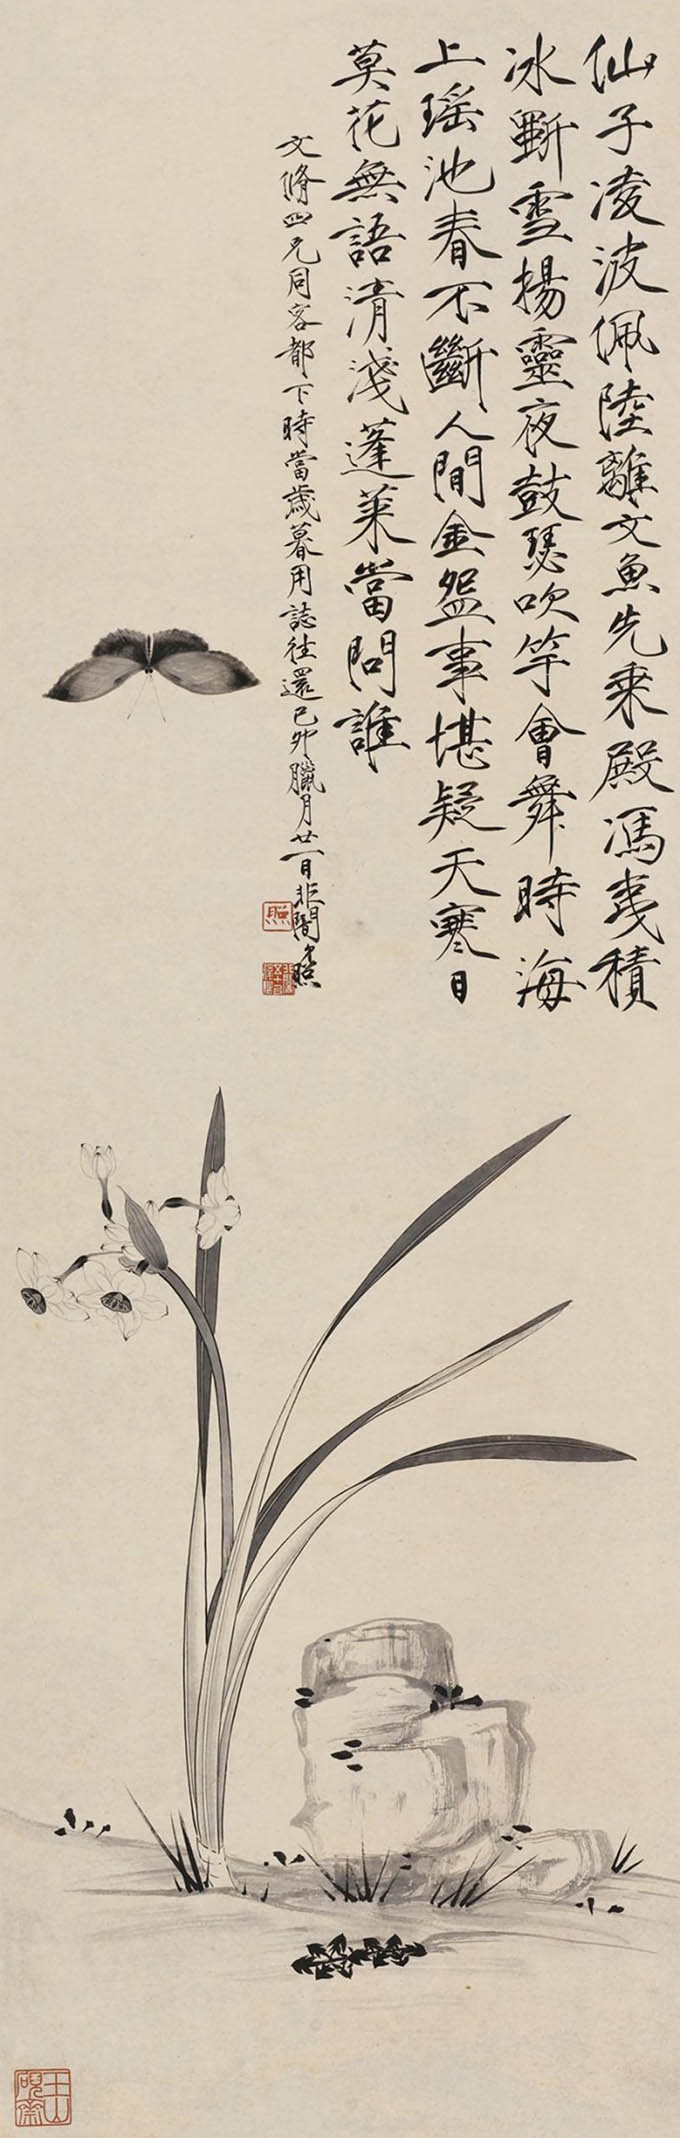 仙子凌波佩陸離文魚先乘殿馮夷積
冰斲雪揚靈夜鼓瑟吹竽會舞時海
上瑤池春不斷人間金盌事堪疑天寒日
莫花無語清淺蓬萊當問誰
文脩四兄同客都下時當歲暮用誌往還己卯臘月廿一日非闇照
照
玉山硯齋